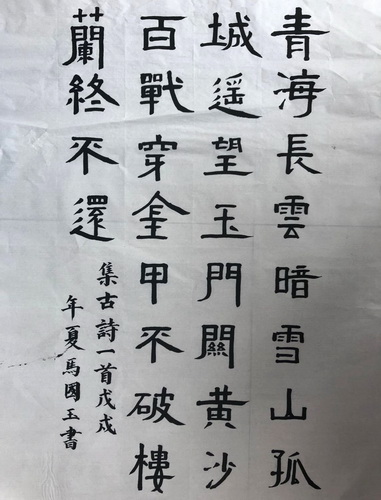 青海長雲暗雪山孤
城遥望玉門關黄沙
百戰穿金甲不破樓
蘭終不還
集古詩一首戊戌
年夏馬國玉書